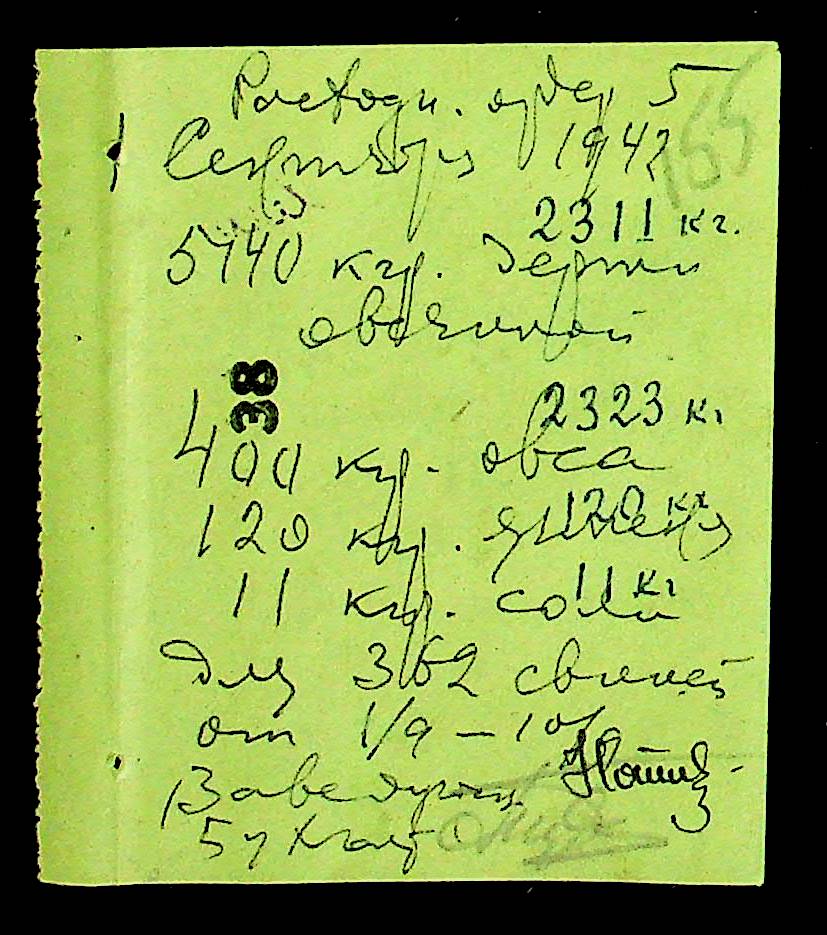 Расходн. ордер 5
155
Сентября 1942
2311 кг.
5140 кгр. дерти
овсяной
38
2323 кг
400 кгр. овса
120 кг
120 кгр. ячменя
11 кг
11 кгр. соли
для 362 свиней
от 1/9 – 10/
Заведующ.
Бухгалт